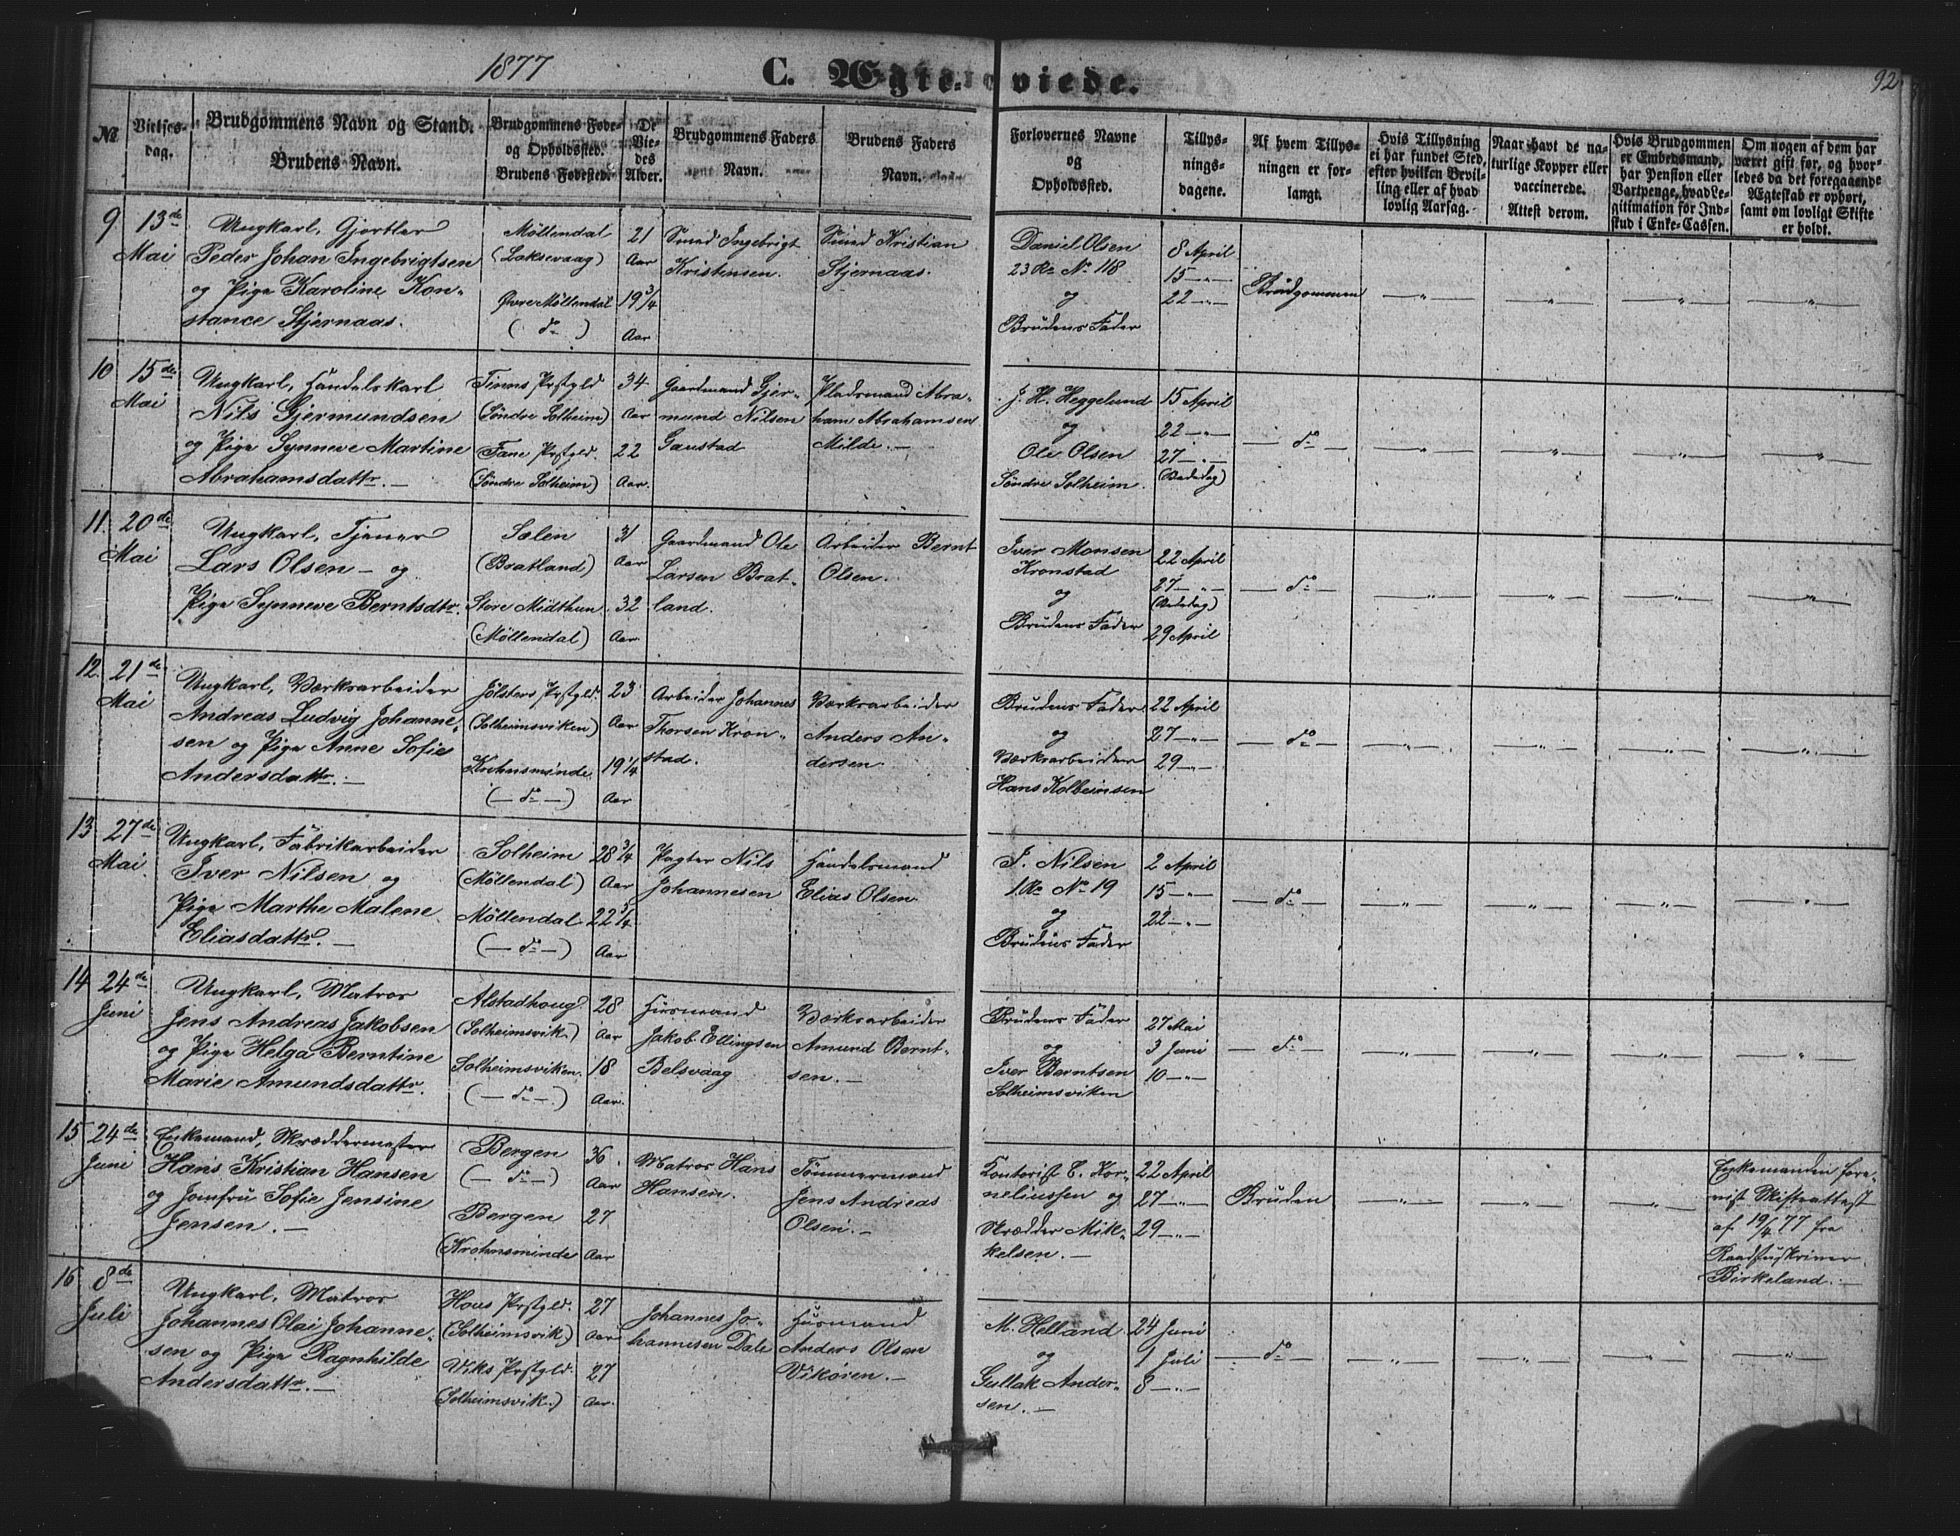 1877
C. Ægteviede.
92
№
Vielses-
dag.
Brudgommens Navn og Stand.
Brudens Navn.
Brudgommens Føde-
og Opholdssted.
Brudens Fødested.
De
Vie-
des
Alder.
Brudgommens Faders
Navn.
Brudens Faders
Navn.
Forlovernes Navne
og
Opholdssted.
Tillys-
nings-
dagene.
Af hvem Tillys-
ningen er for-
langt.
Hvis Tillysning
ei har fundet Sted,
efter hvilken Bevil-
ling eller af hvad
lovlig Aarsag.
Naar havt de na-
turlige Kopper eller
vaccinerede.
Attest derom.
Hvis Brudgommen
er Embedsmand,
har Pension eller
Vartpenge, hvad Le-
gitimation for Ind-
skud i Enke-Cassen.
Om nogen af dem har
været gift før, og hvor-
ledes da det foregaaende
Ægteskab er ophørt,
samt om lovligt Skifte
er holdt.
9
13de
Mai
Ungkarl, Gjørtler
Peder Johan Ingebrigtsen
og Pige Karoline Kon-
stance Stjernaas.
Möllendal
(Laksevaag)
Øvre Möllendal
( do )
21
Aar
19 3/4
Aar
Smed Ingebrigt
Kristensen.
Smed Kristian
Stjernaas.
Daniel Olsen
23 Ro No 118
og
Brudens Fader
8 April
15 — " —
22 — " —
Brudgommen
— " —
— " —
— " —
— " —
10
15de
Mai
Ungkarl, Handelskarl
Nils Gjermundsen
og Pige Synneve Martine
Abrahamsdattr. —
Finnø Prstgld
(Søndre Solheim)
Fane Prstgld.
(Søndre Solheim)
34
Aar
22
Aar.
Gaardmand Gjer-
mund Nilsen
Gaustad
Pladsmand Abra-
ham Abrahamsen
Milde. —
J. H. Heggelund
og
Ole Olsen
Søndre Solheim.
15 April
22 — " —
27 — " —
(Bededag)
— do —
— " —
— " —
— " —
— " —
11.
20de
Mai
Ungkarl, Tjener
Lars Olsen — og
Pige Synneve Berntsdtr.
Sælen
(Bratland)
Store Midthun.
(Möllendal)
31
Aar
32
Aar
Gaardmand Ole
Larsen Brat-
land.
Arbeider Bernt
Olsen.
Iver Monsen
Kronstad
og
Brudens Fader
22 April
27 — " —
(Bededag)
29 April
— do —
— " —
— " —
— " —
— " —
12.
21de
Mai
Ungkarl, Værksarbeider
Andreas Ludvig Johanne-
sen og Pige Anne Sofie
Andersdattr. —
Jölsters Prstgld.
(Solheimsviken)
Krohnsminde.
(— do —)
23
Aar
19 1/4
Aar
Arbeider Johannes
Thorsen Kron-
stad.
Værksarbeider
Anders An-
dersen.
Brudens Fader
og
Værksarbeider
Hans Kolbeinsen
22 April
27 — " —
29 — " —
— do —
— " —
— " —
— " —
— " —
13
27de
Mai.
Ungkarl, Fabrikarbeider
Iver Nilsen og
Pige Marthe Malene
Eliasdattr. —
Solheim
(Möllendal)
Möllendal
(— do —)
28 3/4
Aar
22 3/4
Aar
Pagter Nils
Johannesen
Handelsmand
Elias Olsen
I. Nilsen
1. Ro No 19
og
Brudens Fader
2 April
15 — " —
22 — " —
— do —
— " —
— " —
— " —
— " —
14
24de
Juni
Ungkarl, Matros
Jens Andreas Jakobsen
og Pige Helga Berntine
Marie Amundsdattr.
Alstadhoug
(Solheimsvik.)
Solheimsviken.
(— do —.)
28
Aar
18
Aar.
Husmand
Jakob Ellingsen
Belsvaag
Værksarbeider
Amund Bernt-
sen. —
Brudens Fader
og
Iver Berntsen
Solheimsviken
27 Mai
3 Juni
10 — " —
— do —
— " —
— " —
— " —
— " —
15
24de
Juni
Enkemand, Skræddermester
Hans Kristian Hansen
og Jomfru Sofie Jensine
Jensen. —
Bergen
(— do —)
Bergen
(Krohnsminde
36.
Aar
27
Aar
Matros Hans
Hansen.
Tömmermand
Jens Andreas
Olsen. —
Kontorist E. Kor-
neliussen og
Skrædder Mik-
kelsen. —
22 April
27 — " —
29 — " —
Bruden
— " —
— " —
— " —
Enkemanden fore-
vist Skifteattest
af 19/4 77 fra
Raadstuskriver
Birkeland. —
16
8de
Juli
Ungkarl, Matros
Johannes Olai Johanne-
sen og Pige Ragnhilde
Andersdattr. —
Hous Prstgld.
(Solheimsvik.)
Viks Prstgld.
(Solheimsvik.)
27
Aar
27
Aar.
Johannes Jo-
hannesen Dale
Husmand
Anders Olsen
Vikören. —
M. Helland
og
Gullak Ander-
sen. —
24 Juni
1 Juli
8 — " —
— do —
— " —
— " —
— " —
— " —